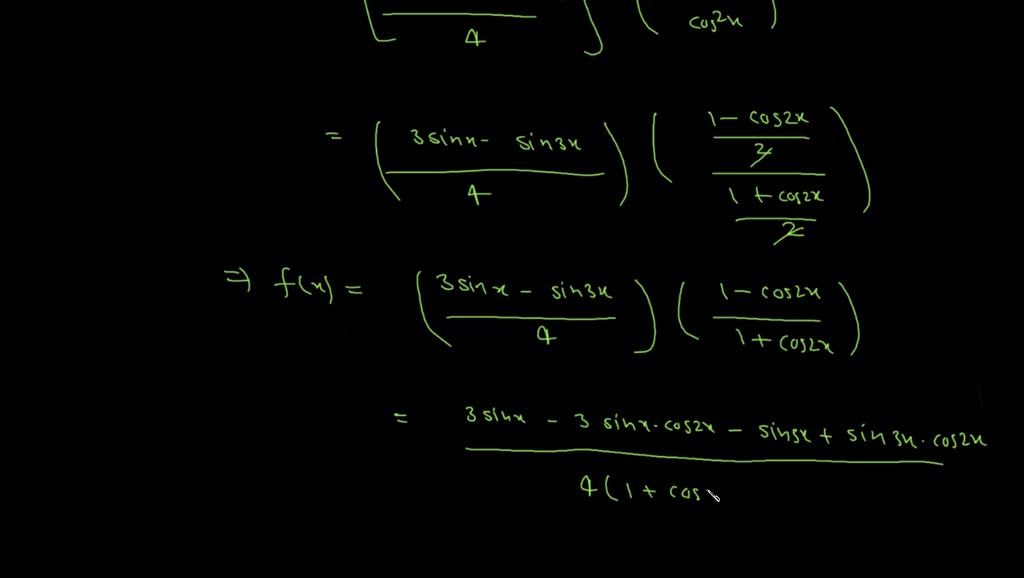 [ / 4 ] ( / cos²x )
= ( (3sinx - sin3x) / 4 ) ( ((1 - cos2x) / 2) / ((1 + cos2x) / 2) )
⇒ f(x) = ( (3sinx - sin3x) / 4 ) ( (1 - cos2x) / (1 + cos2x) )
= 3sinx - 3 sinx·cos2x - sin3x + sin3x·cos2x
4(1 + cos